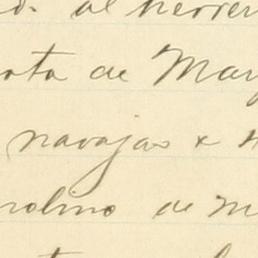 d. al herrer
ota de May
navajas x
rolino de m